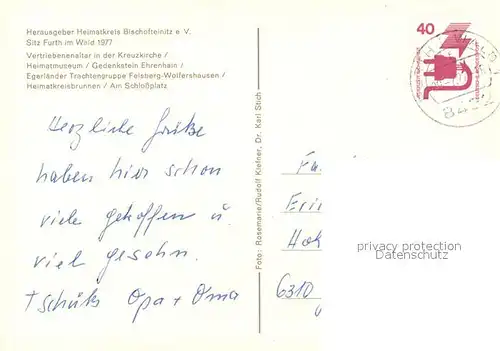 Herausgeber Heimatkreis Bischofteinitz e V.
Sitz Furth im Wald 1977
Vertriebenenaltar in der Kreuzkirche /
Heimatmuseum / Gedenkstein Ehrenhain /
Egerländer Trachtengruppe Felsberg-Wolfershausen /
Heimatkreisbrunnen / Am Schloßplatz
Herzliche Grüße
haben hier schon
viele getroffen u.
viel gesehn.
Tschüß Opa + Oma
Foto: Rosemarie/Rudolf Kiefner, Dr. Karl Stich
40
Fa
Eri
6310
privacy protection
Datenschutz